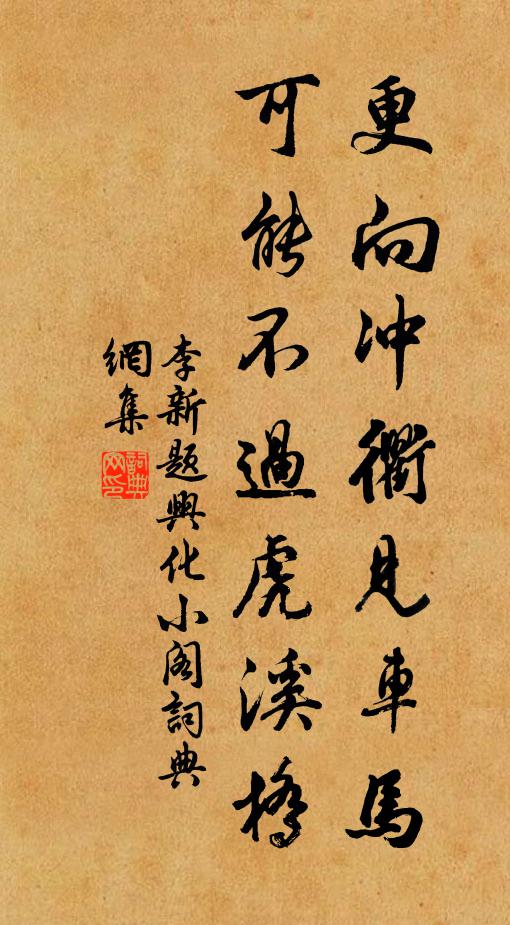 更向冲衢見車馬
可能不過虎溪橋
李新题興化小阁詞典
網集
詞典网印